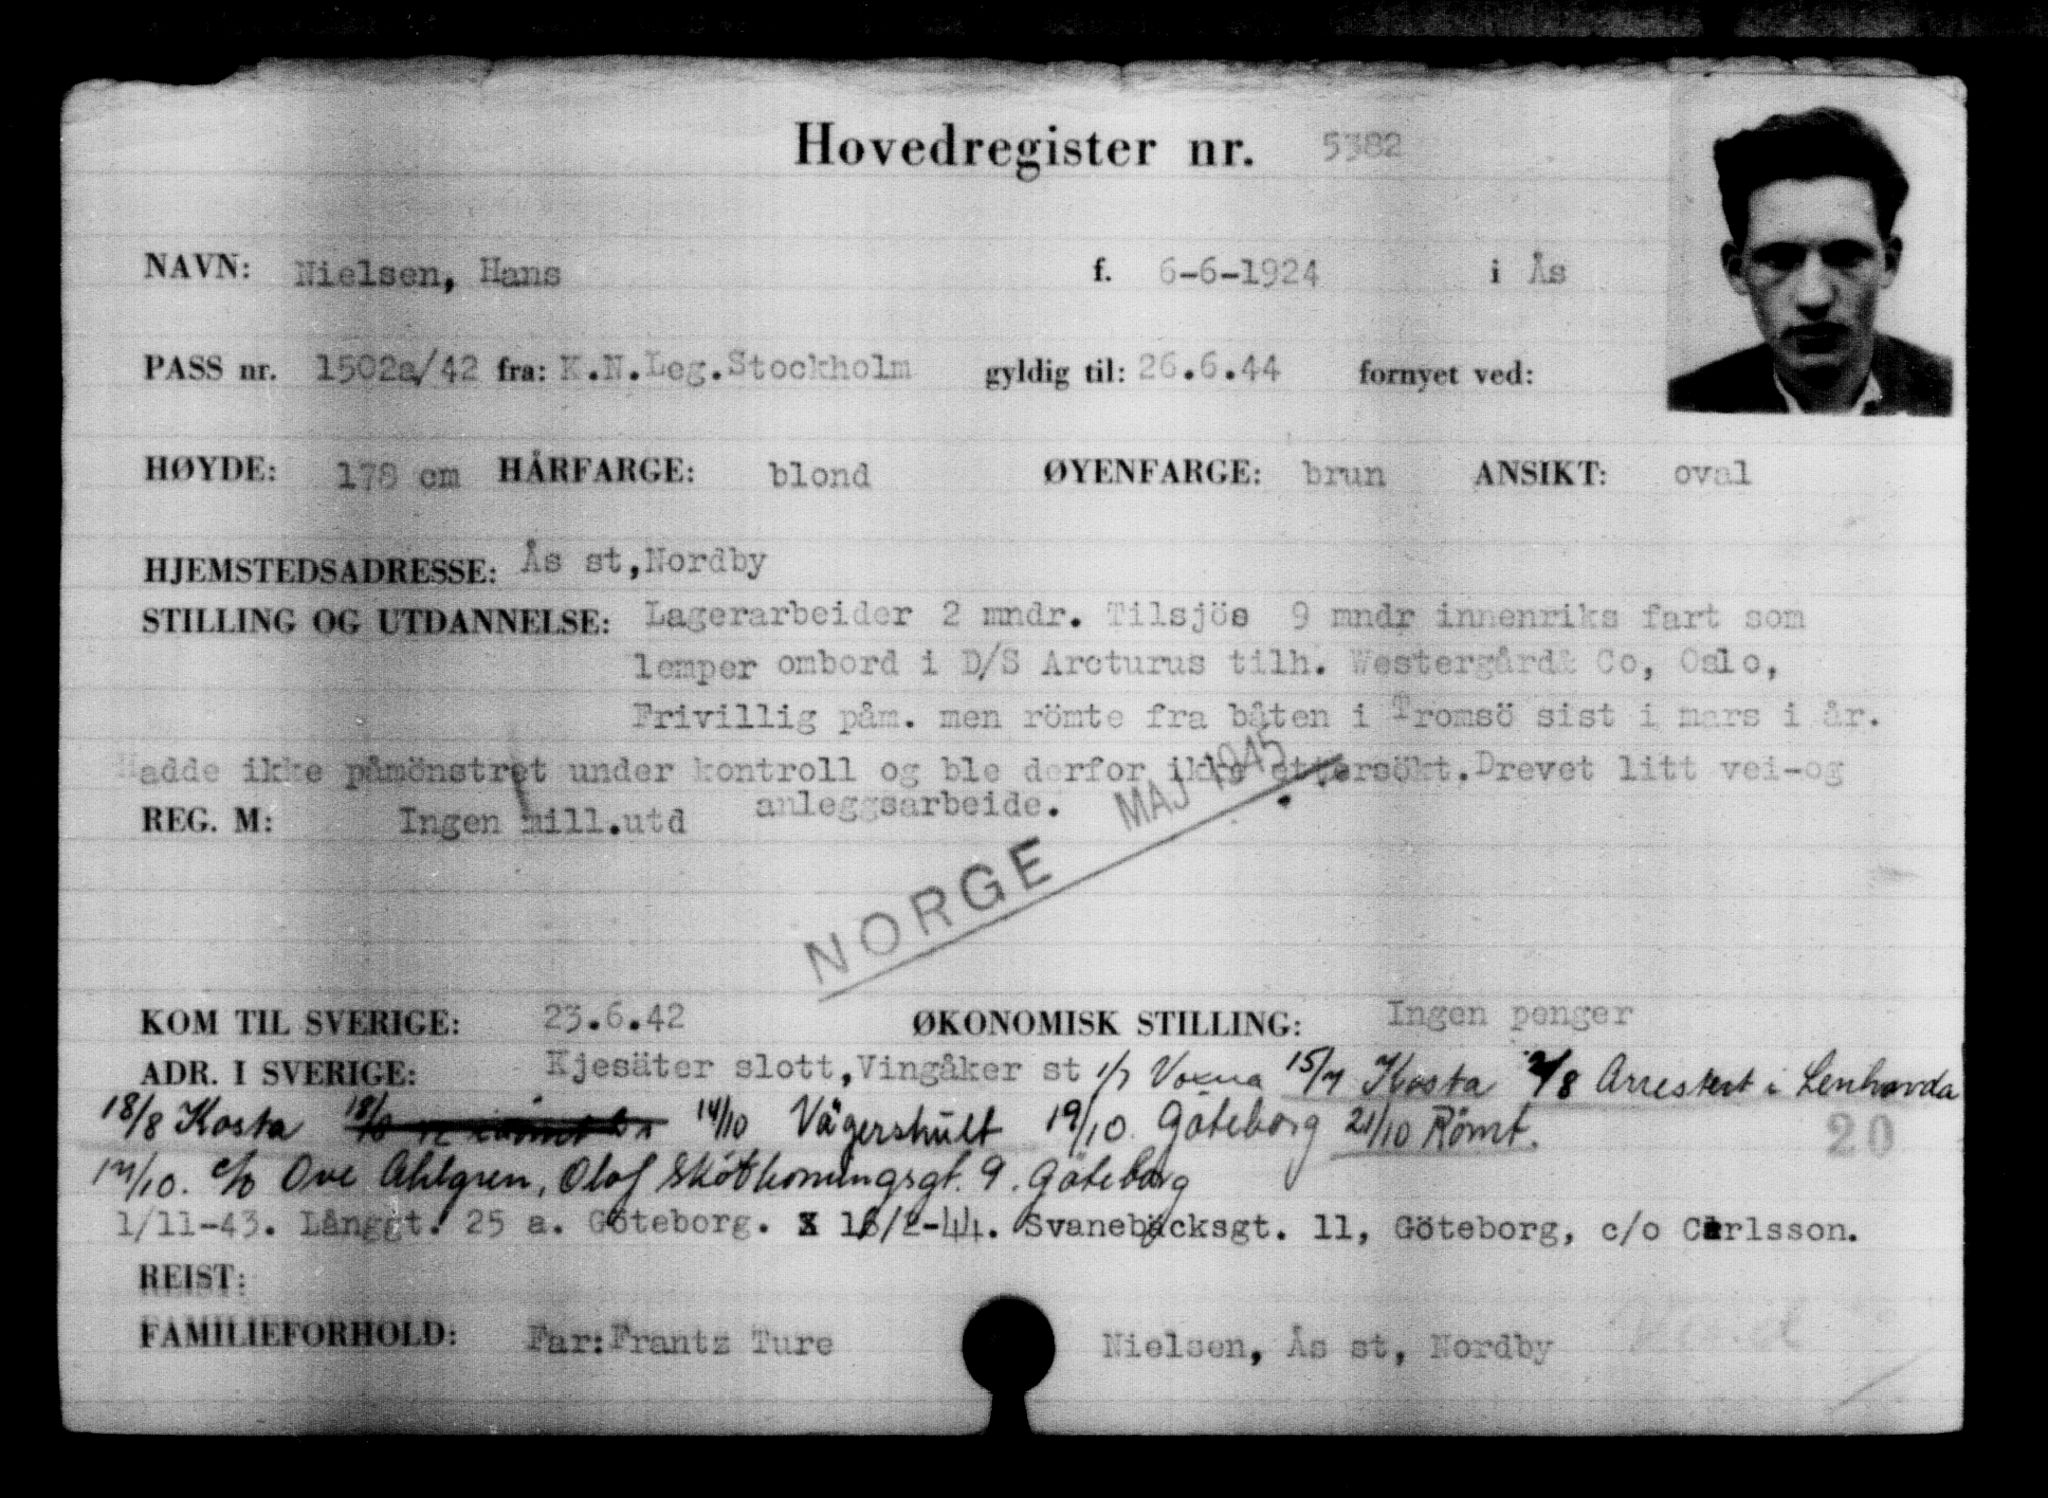 Hovedregister nr. 5382
NAVN: Nielsen, Hans f. 6-6-1924 i Ås
PASS nr. 1502a/42 fra: K.N.Leg.Stockholm gyldig til: 26.6.44 fornyet ved:
HØYDE: 178 cm HÅRFARGE: blond ØYENFARGE: brun ANSIKT: oval
HJEMSTEDSADRESSE: Ås st,Nordby
STILLING OG UTDANNELSE: Lagerarbeider 2 mndr. Tilsjös 9 mndr innenriks fart som
lemper ombord i D/S Arcturus tilh. Westergård& Co, Oslo,
Frivillig påm. men römte fra båten i Tromsö sist i mars i år.
Hadde ikke påmönstret under kontroll og ble derfor ikke ettersökt. Drevet litt vei-og
anleggsarbeide.
REG. M: Ingen mill.utd
NORGE MAJ 1945
KOM TIL SVERIGE: 23.6.42 ØKONOMISK STILLING: Ingen penger
ADR. I SVERIGE: Kjesäter slott,Vingåker st 1/7 Voxna 15/7 Kosta 2/8 Arrestert i Lenhovda
18/8 Kosta 14/10 Vägershult 19/10 Göteborg 21/10 Römt.
20
c/o Ove Ahlgren, Olof Skötkonungsgt. 9. Göteborg
1/11-43. Långgt. 25 a. Göteborg. 16/2-44. Svanebäcksgt. 11, Göteborg, c/o Carlsson.
REIST:
FAMILIEFORHOLD: Far:Frantz Ture Nielsen, Ås st, Nordby